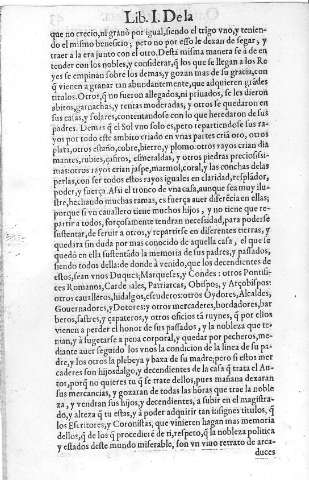 Lib. I. De la
que no crecio, ni granò por igual, siendo el trigo vno, y tenien-
do el mismo beneficio; pero no por esso le dexan de segar, y
traer a la era junto con el otro. Desta misma manera se à de en
tender con los nobles, y considerar, q̃ los que se llegan a los Re
yes se empinan sobre los demas, y gozan mas de su gracia, con
q̃ vienen a granar tan abundantemente, que adquieren grãdes
titulos. Otros, q̃ no fueron allegados, ni priuados, se les dieron
abitos, garnachas, y rentas moderadas, y otros se quedaron en
sus casas, y solares, contentandose con lo que heredaron de sus
padres. Demas q̃ el Sol vno solo es, pero repartiendose sus ra-
yos por todo este ambito criado en vnas partes criã oro, otros
plata, otros estaño, cobre, hierro, y plomo: otros rayos crian dia
mantes, rubies, çafiros, esmeraldas, y otros piedras preciosissi-
mas: otros rayos crian jaspe, marmol, coral, y las conchas de las
perlas, con ser todos estos rayos iguales en claridad, resplãdor,
poder, y fuerça. Assi el tronco de vna casa, aunque sea muy ilu-
stre, hechando muchas ramas, es fuerça auer diferẽcia en ellas;
porque si vn cauallero tiene muchos hijos, y no tiene que re-
partir a todos, forçosamente tendran necessidad, para poderse
sustentar, de seruir a otros, y repartirse en diferentes tierras, y
quedarà sin duda por mas conocido de aquella casa, el que se
quedò en ella sustentãdo la memoria de sus padres, y passados,
siendo todos della de donde à venido, que los decendientes de
estos, sean vnos Duques, Marqueses, y Condes: otros Pontifi-
ces Romanos, Cardenales, Patriarcas, Obispos, y Arçobispos:
otros caualleros, hidalgos, escuderos: otros Oydores, Alcaldes,
Gouernadores, y otros mercaderes, bordadores, bar
beros, sastres, y çapateros, y otros oficios tã ruynes, q̃ por ellos
vienen a perder el honor de sus passados, y la nobleza que te-
nian, y à sugetarse a pena corporal, y quedar por pecheros, me-
diante auer seguido los vnos la condicion de la linea de su pa-
dre, y los otros la plebeya y baxa de su madre; pero si estos mer
caderes son hijosdalgo, y decendientes de la casa q̃ trata el Au-
tor, porq̃ no quieres tu q̃ se trate dellos, pues mañana dexaran
sus mercancias, y gozaran de todas las hõras que trae la noble
za, y vendran sus hijos, y decendientes, a subir en el magistra-
do, y alteza q̃ tu estas, y à poder adquirir tan insignes titulos, q̃
los Escritores, y Coronistas, que vinieren hagan mas memoria
dellos, q̃ de los q̃ procedierẽ de ti, respeto, q̃ la nobleza politica
y estados deste mundo miserable, son vn viuo retrato de arca-
duces